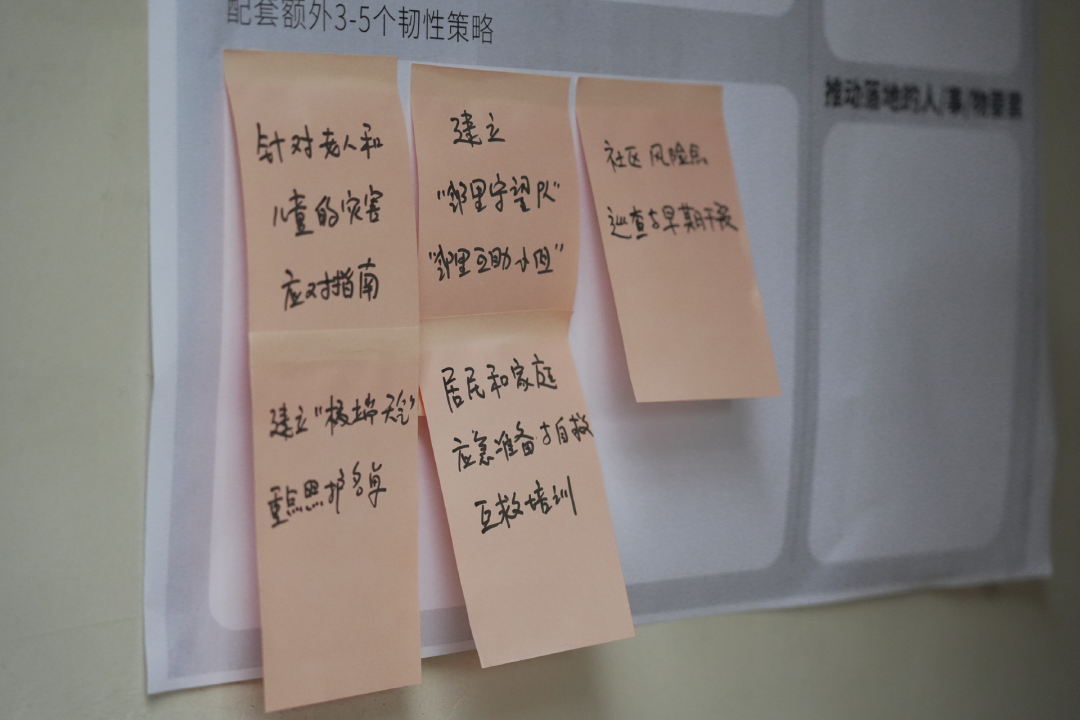 配套额外3-5个韧性策略
推动落地的人/事/物要素
针对老人和
儿童的灾害
应对指南
建立
“邻里守望队”
“邻里互助小组”
社区风险点
巡查与早期干预
建立“极端天气”
重点照护名单
居民和家庭
应急准备与自救
互救培训